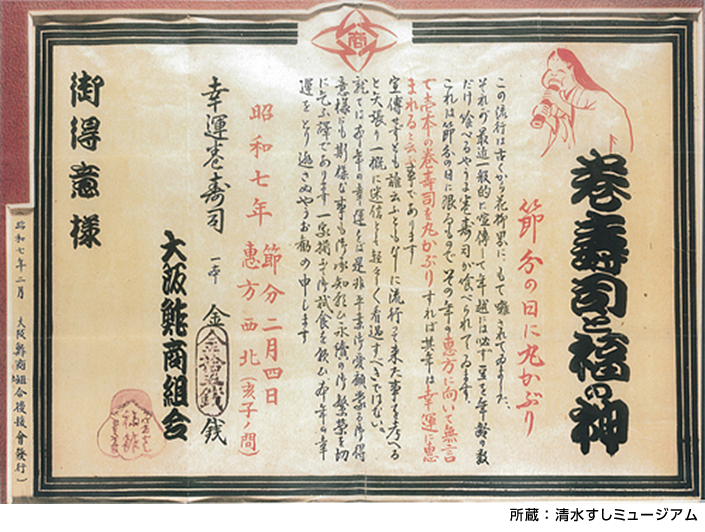 商
巻壽司と福の神
節分の日に丸かぶり
この流行は古くから花柳界にもて囃されてゐました。
それが最近一般的に宣傳して年越には必ず豆を年齢の数
だけ喰べるやうに巻壽司が喰べられてゐます。
これは節分の日に限るもので、その年の恵方に向いて無言
で壱本の巻壽司を丸かぶりすれば其年は幸運に恵
まれると云ふ事であります
宣傳せずとも誰云ふともなしに流行って来た事を考へる
と矢張り一概に迷信とし軽々しく看過すべきではない。
就ては本年の幸運をば是非
御得
意様にも
永續の
繁栄を切
に乞ふ譯であります 一家揃ふて御試食を
本年の幸
運をとり逃さぬやうお勧め申します
昭和七年 節分二月四日
恵方 西北 (亥子ノ間)
幸運巻壽司 一本 金 貳拾五銭 銭
大阪鮓商組合
御得意様
昭和七年二月 大阪鮓商組合後援會發行
福
所蔵：清水すしミュージアム